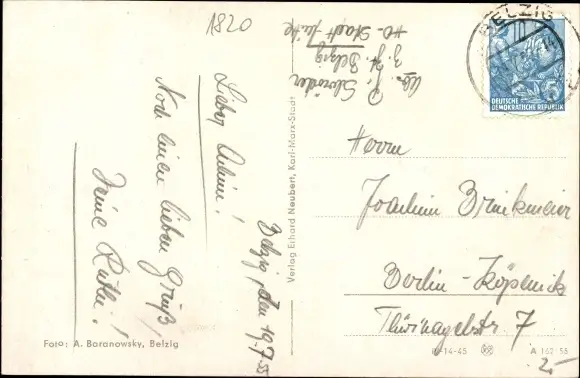 1820
Belzig, den 19.7.55
Lieber Achim!
Noch einen lieben Gruß!
Deine Ruth!
Foto: A. Baranowsky, Belzig
Verlag Erhard Neubert, Karl-Marx-Stadt
Abs.
z. Zt. Belzig
BELZIG
DEUTSCHE
DEMOKRATISCHE REPUBLIK
5
Herrn
Joachim Brinkmeier
Berlin-Köpenick
Thüringerstr. 7
A 162 55
2,-